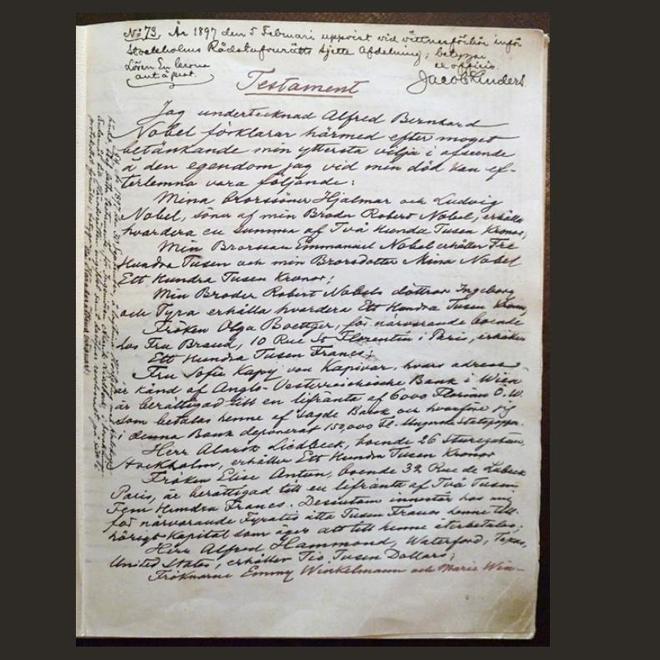 No 73. År 1897 den 5 Februari uppvist vid vittnesförhör inför
Stockholms Rådstufvurätts sjette Afdelning; betygar
Lösen En krona ex officio
Testament
Jag undertecknad Alfred Bernhard
Nobel förklarar härmed efter moget
betänkande min yttersta vilja i afseende
å den egendom jag vid min död kan ef-
terlemna vara följande:
Mina Brorssöner Hjalmar och Ludvig
Nobel, söner af min Broder Robert Nobel, erhålla
hvardera en summa af Två Hundra Tusen Kronor;
Min Brorsson Emmanuel Nobel erhåller Tre
Hundra Tusen och min Brorsdotter Mina Nobel
Ett Hundra Tusen Kronor;
Min Broder Robert Nobels döttrar Ingeborg
och Tyra erhålla hvardera Ett Hundra Tusen Kronor;
Fröken Olga Boettger, för närvarande boende
hos Fru Brand, 10 Rue St Florentin i Paris, erhåller
Ett Hundra Tusen Francs;
Fru Sofie Kapy von Kapivar, hvars adress
är känd af Anglo-Oesterreichische Bank i Wien
är berättigad till en lifränta af 6000 Florins Ö.W.
som betalas henne af sagde Bank och hvarföre jag
i denna Bank deponerat 150,000 Fl. i Ungerska Statspapper.
Herr Alarik Liedbeck, boende 26 Sturegatan,
Stockholm, erhåller Ett Hundra Tusen Kronor
Fröken Elise Antun, boende 32 Rue de Lubeck
Paris, är berättigad till en lifränta af Två Tusen
Fem Hundra Francs. Desutom innestår hos mig
för närvarande Fyratio åtta Tusen Francs henne till-
hörigt Kapital som äger att till henne återbetalas;
Herr Alfred Hammond, Waterford, Texas,
United States, erhåller Tio Tusen Dollars;
Fröknarne Emmy Winkelmann och Marie Win-